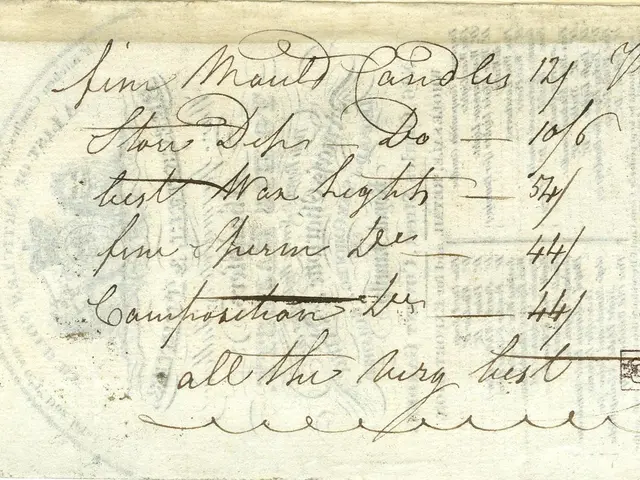 fine Mould Candles 12/
Store Dips — Do — 10/6
best Wax Lights — 54/
fine Sperm Do — 44/
Composition Do — 44/
all the very best